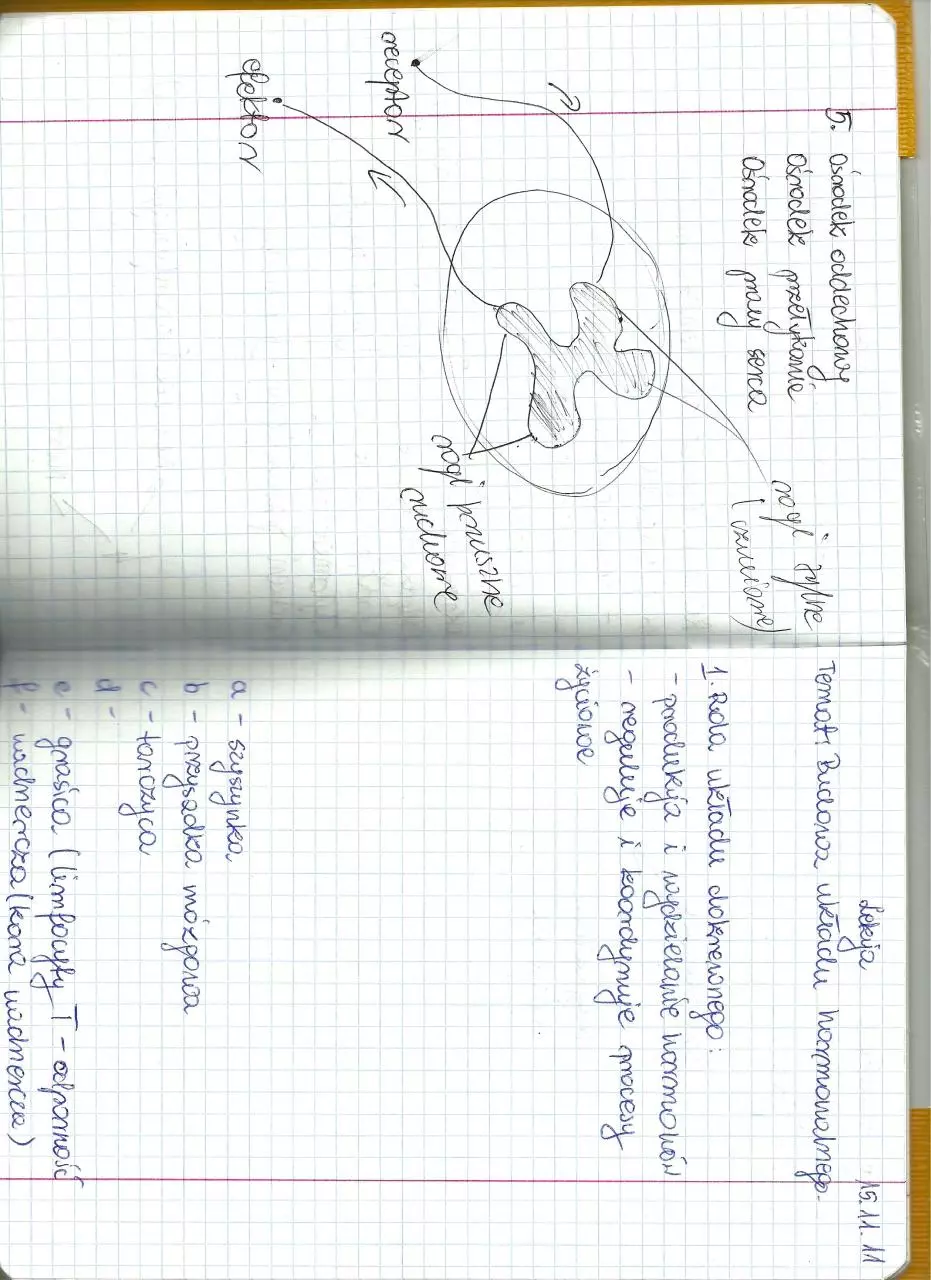 5. ośrodek oddechowy
ośrodek przełykanie
ośrodek pracy serca
rogi tylne
(czuciowe)
receptor
efektor
rogi brzuszne
ruchowe
Lekcja
15.11.11
Temat: Budowa układu hormonalnego.
1. Rola układu dokrewnego:
- produkcja i wydzielanie hormonów
- reguluje i koordynuje procesy
życiowe
a - szyszynka
b - przysadka mózgowa
c - tarczyca
d -
e - grasica (limfocyty T - odporność
f - nadnercza (kora nadnercza)